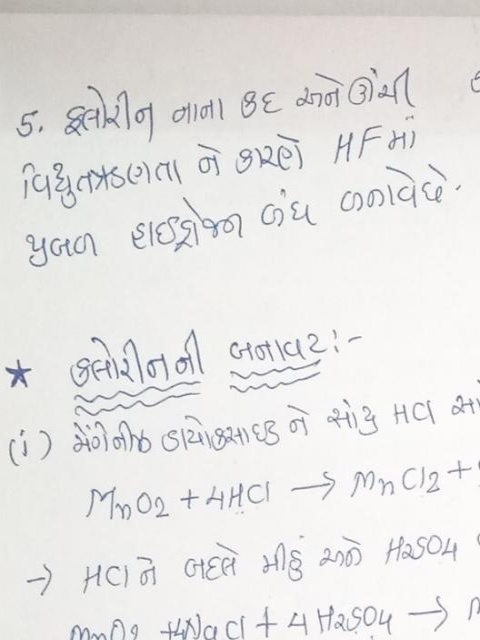 5. ફ્લોરીન નાના કદ અને ઊંચી
વિદ્યુતઋણતા ને કારણે HF માં
પ્રબળ હાઇડ્રોજન બંધ બનાવેછે.
★ ક્લોરીનની બનાવટ :-
(i) મેંગેનીઝ ડાયોક્સાઇડ ને સાંદ્ર HCl
MnO2 + 4HCl → MnCl2 +
→ HCl ને બદલે મીઠું અને H2SO4
MnO2 + 4NaCl + 4H2SO4 →